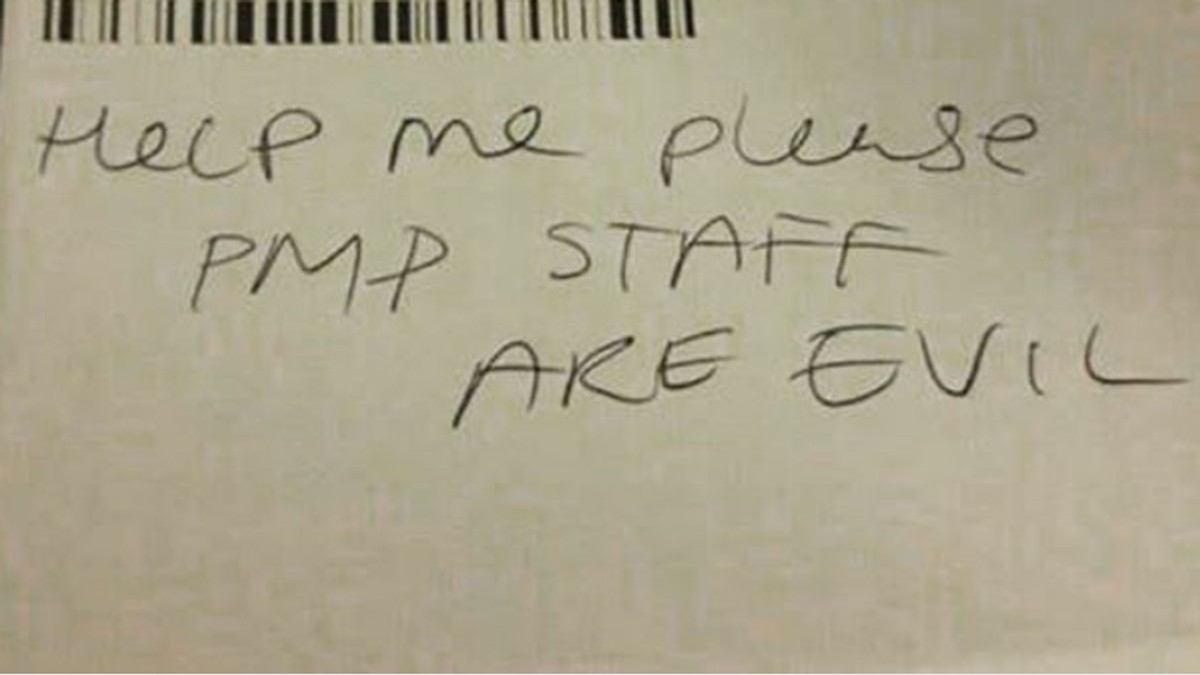 Help me please
PMP STAFF
ARE EVIL